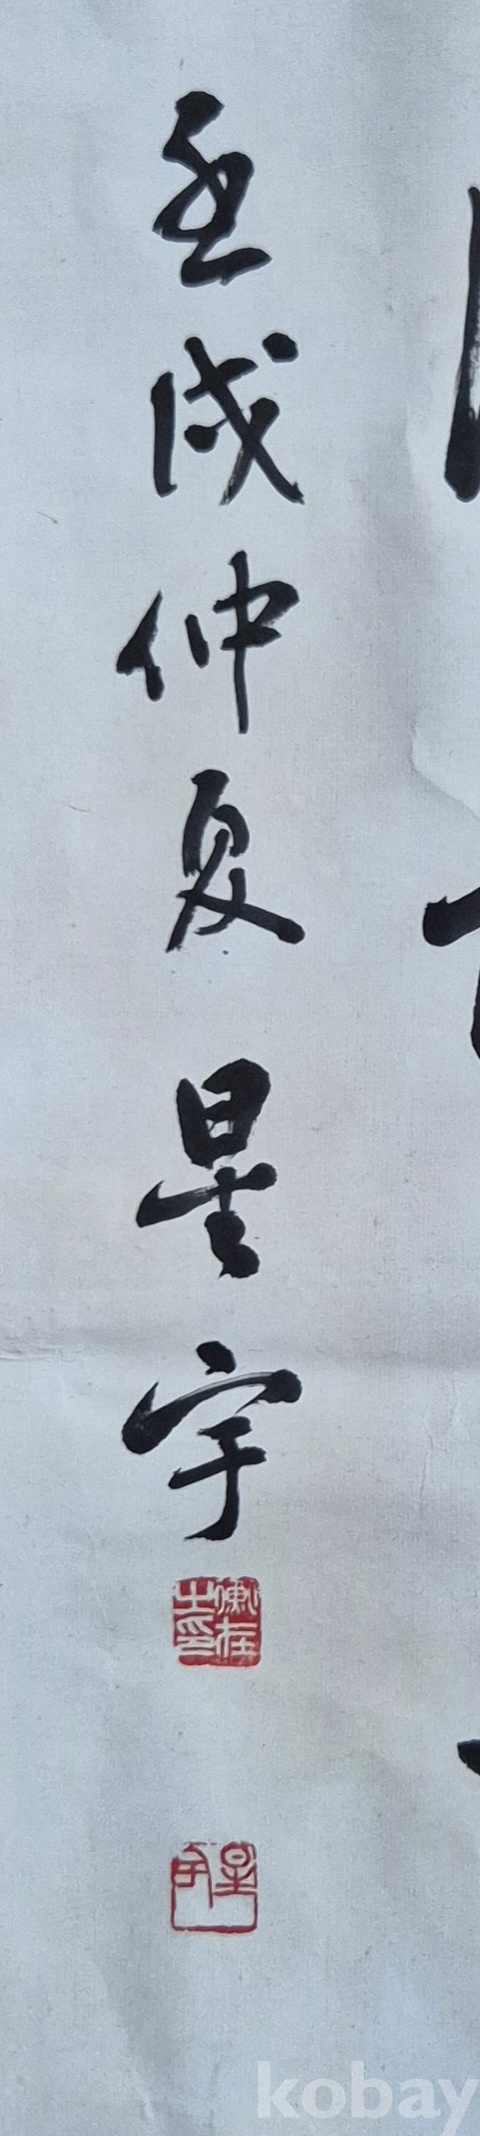 壬戌仲夏 星宇
星宇
kobay